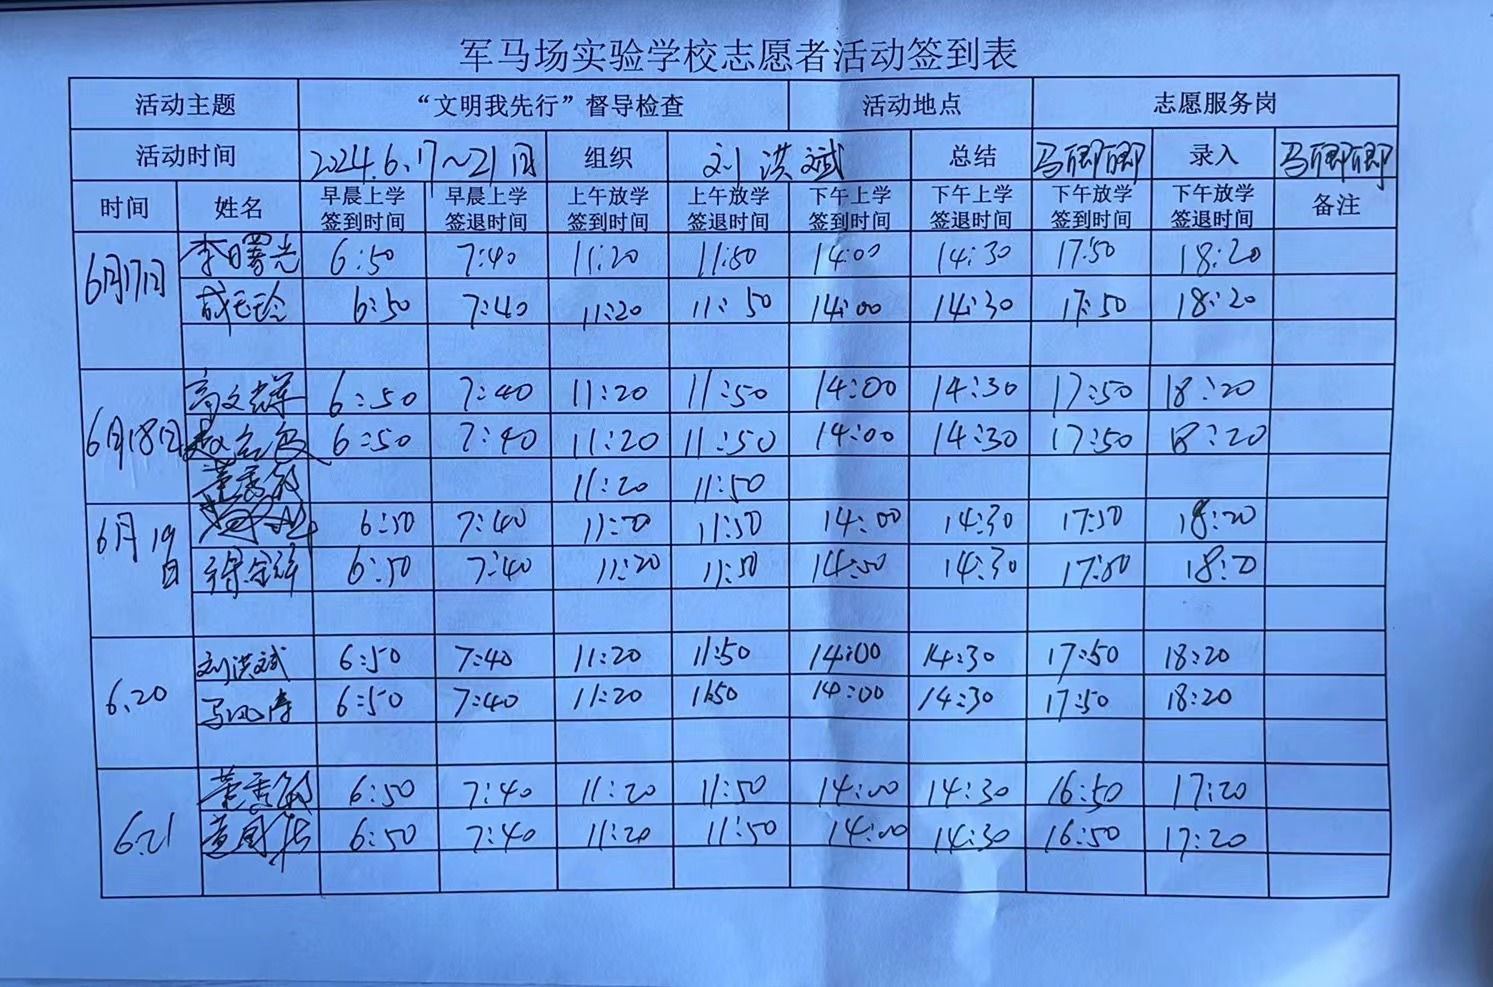 军马场实验学校志愿者活动签到表
活动主题 “文明我先行”督导检查 活动地点 志愿服务岗
活动时间 2024.6.17~21日 组织 刘洪斌 总结 马卿卿 录入 马卿卿
时间 姓名 早晨上学签到时间 早晨上学签退时间 上午放学签到时间 上午放学签退时间 下午上学签到时间 下午上学签退时间 下午放学签到时间 下午放学签退时间 备注
6月17日 李曙光 6:50 7:40 11:20 11:50 14:00 14:30 17:50 18:20
6:50 7:40 11:20 11:50 14:00 14:30 17:50 18:20
6月18日 高文群 6:50 7:40 11:20 11:50 14:00 14:30 17:50 18:20
6:50 7:40 11:20 11:50 14:00 14:30 17:50 18:20
董秀敏 11:20 11:50
6月19日 6:50 7:40 11:20 11:50 14:00 14:30 17:50 18:20
6:50 7:40 11:20 11:50 14:50 14:30 17:50 18:20
6.20 刘洪斌 6:50 7:40 11:20 11:50 14:00 14:30 17:50 18:20
马风涛 6:50 7:40 11:20 11:50 14:00 14:30 17:50 18:20
6.21 董秀敏 6:50 7:40 11:20 11:50 14:00 14:30 16:50 17:20
6:50 7:40 11:20 11:50 14:00 14:30 16:50 17:20